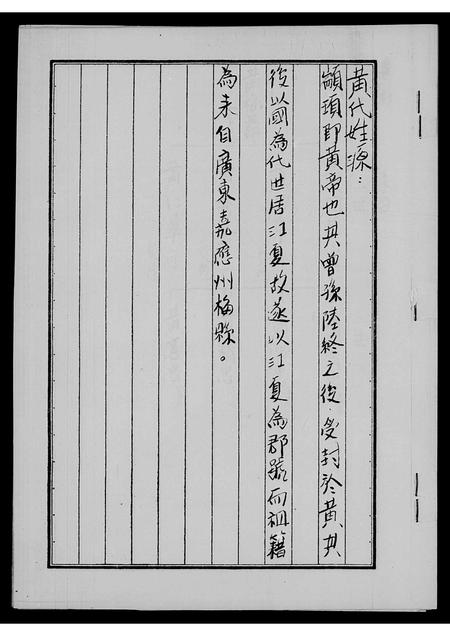 黃代姓源：
顓頊即黃帝也其曾孫陸終之後，受封於黃其
後以國為代世居江夏故遂以江夏為郡號而祖籍
為來自廣東嘉應州梅縣。